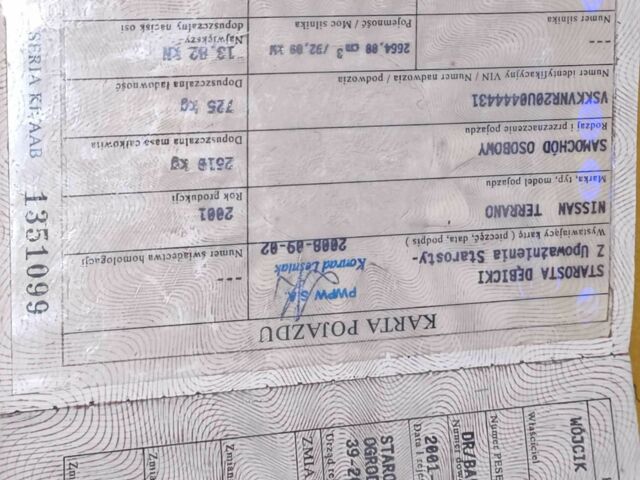 KARTA POJAZDU
STAROSTA DĘBICKI
Z Upoważnienia Starosty-
PWPW S.A.
Konrad Leśniak
2008-09-02
Wystawiający kartę ( pieczęć, data, podpis )
---
Numer świadectwa homologacji
NISSAN TERRANO
Marka, typ, model pojazdu
2001
Rok produkcji
SAMOCHÓD OSOBOWY
Rodzaj i przeznaczenie pojazdu
2510 kg
Dopuszczalna masa całkowita
VSKKVNR20U0444431
Numer identyfikacyjny VIN / Numer nadwozia / podwozia
725 kg
Dopuszczalna ładowność
---
Numer silnika
2664,00 cm3 /92,00 kW
Pojemność / Moc silnika
13,82 kN
Największy
dopuszczalny nacisk osi
SERIA KF/AAB 1351099
WÓJCIK
Właściciel
Numer PESE
DR/BA
Numer dow
2001
Data 1 reje
STARO
OGROD
39-20
Urząd re
ZMIA
Zmian
Zmi
Zm